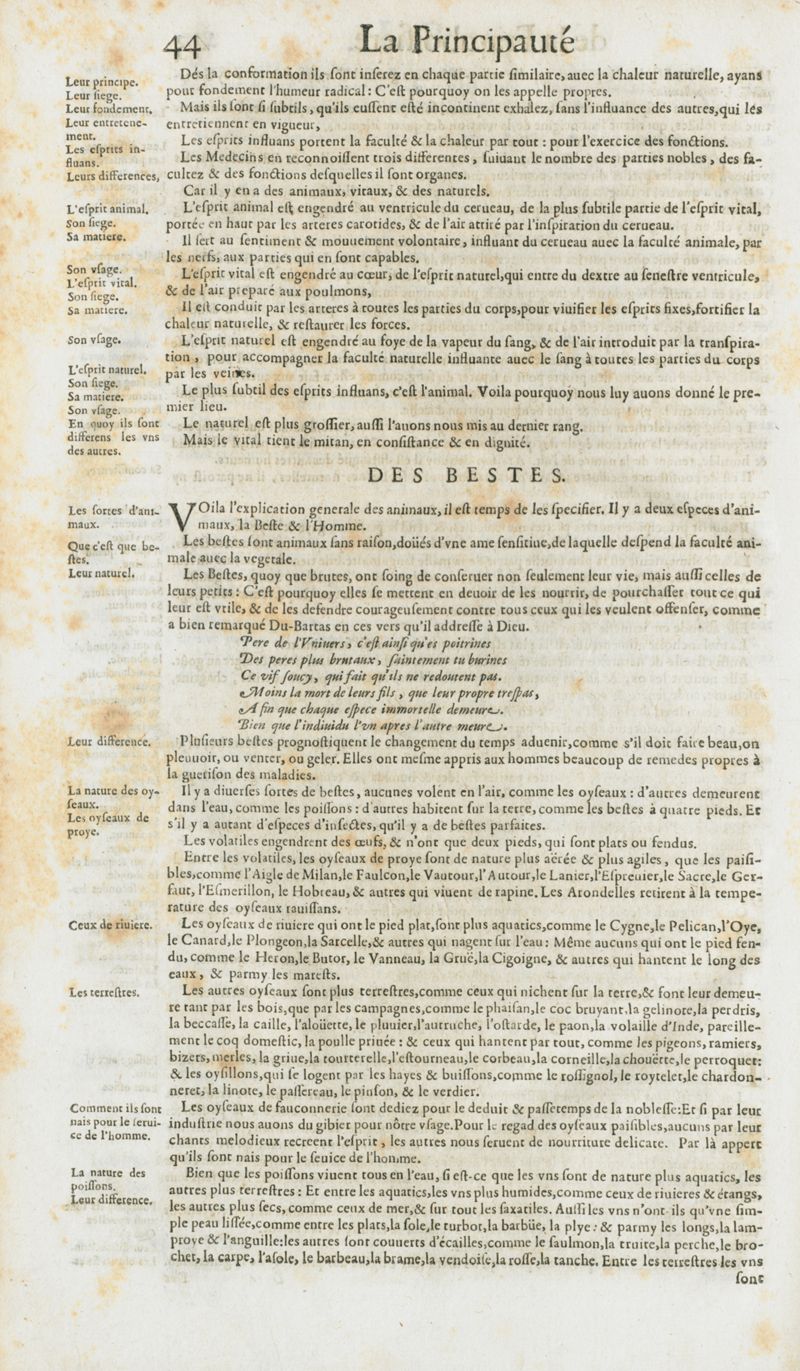 44 La Principauté
Leur principe.
Leur siege.
Leur fondement.
Leur entretene-
ment.
Les esprits in-
fluans.
Leurs differences,
Dés la conformation ils sont inserez en chaque partie similaire, auec la chaleur naturelle, ayans
pour fondement l'humeur radical : C'est pourquoy on les appelle propres.
Mais ils sont si subtils, qu'ils eussent esté incontinent exhalez, sans l'influance des autres, qui les
entretiennent en vigueur,
Les esprits influans portent la faculté & la chaleur par tout : pour l'exercice des fonctions.
Les Medecins en reconnoissent trois differences, suiuant le nombre des parties nobles, des fa-
cultez & des fonctions desquelles il sont organes.
Car il y en a des animaux, vitaux, & des naturels.
L'esprit animal.
Son siege.
Sa matiere.
L'esprit animal est engendré au ventricule du cerueau, de la plus subtile partie de l'esprit vital,
portée en haut par les arteres carotides, & de l'air attiré par l'inspiration du cerueau.
Son vsage.
Il sert au sentiment & mouuement volontaire, influant du cerueau auec la faculté animale, par
les nerfs, aux parties qui en sont capables.
L'esprit vital.
Son siege.
Sa matiere.
L'esprit vital est engendré au cœur, de l'esprit naturel, qui entre du dextre au senestre ventricule,
& de l'air preparé aux poulmons,
Son vsage.
Il est conduit par les arteres à toutes les parties du corps, pour viuifier les esprits fixes, fortifier la
chaleur naturelle, & restaurer les forces.
L'esprit naturel.
Son siege.
Sa matiere.
Son vsage.
L'esprit naturel est engendré au foye de la vapeur du sang, & de l'air introduit par la transpira-
tion, pour accompagner la faculté naturelle influante auec le sang à toutes les parties du corps
par les veines.
En quoy ils sont
differens les vns
des autres.
Le plus subtil des esprits influans, c'est l'animal. Voila pourquoy nous luy auons donné le pre-
mier lieu.
Le naturel est plus grossier, aussi l'auons nous mis au dernier rang.
Mais le vital tient le mitan, en consistance & en dignité.
DES BESTES.
Les sortes d'ani-
maux.
VOila l'explication generale des animaux, il est temps de les specifier. Il y a deux especes d'ani-
maux, la Beste & l'Homme.
Que c'est que be-
stes.
Les bestes sont animaux sans raison, doüés d'vne ame sensitiue, de laquelle despend la faculté ani-
male auec la vegetale.
Leur naturel.
Les Bestes, quoy que brutes, ont soing de conseruer non seulement leur vie, mais aussi celles de
leurs petits : C'est pourquoy elles se mettent en deuoir de les nourrir, de pourchasser tout ce qui
leur est vtile, & de les defendre courageusement contre tous ceux qui les veulent offenser, comme
a bien remarqué Du-Bartas en ces vers qu'il addresse à Dieu.
Pere de l'Vniuers, c'est ainsi qu'es poitrines
Des peres plus brutaux, saintement tu burines
Ce vif soucy, qui fait qu'ils ne redoutent pas.
Moins la mort de leurs fils, que leur propre trespas,
A fin que chaque espece immortelle demeure.
Bien que l'indiuidu l'vn apres l'autre meure.
Leur difference.
Plusieurs bestes prognostiquent le changement du temps aduenir, comme s'il doit faire beau, on
pleuuoir, ou venter, ou geler. Elles ont mesme appris aux hommes beaucoup de remedes propres à
la guerison des maladies.
La nature des oy-
seaux.
Les oyseaux de
proye.
Il y a diuerses sortes de bestes, aucunes volent en l'air, comme les oyseaux : d'autres demeurent
dans l'eau, comme les poissons : d'autres habitent sur la terre, comme les bestes à quatre pieds. Et
s'il y a autant d'especes d'insectes, qu'il y a de bestes parfaites.
Les volatiles engendrent des œufs, & n'ont que deux pieds, qui sont plats ou fendus.
Entre les volatiles, les oyseaux de proye sont de nature plus aërée & plus agiles, que les paisi-
bles, comme l'Aigle de Milan, le Faulcon, le Vautour, l'Autour, le Lanier, l'Espreuier, le Sacre, le Ger-
faut, l'Esmerillon, le Hobreau, & autres qui viuent de rapine. Les Arondelles retirent à la tempe-
rature des oyseaux rauissans.
Ceux de riuiere.
Les oyseaux de riuiere qui ont le pied plat, sont plus aquatics, comme le Cygne, le Pelican, l'Oye,
le Canard, le Plongeon, la Sarcelle, & autres qui nagent sur l'eau : Même aucuns qui ont le pied fen-
du, comme le Heron, le Butor, le Vanneau, la Gruë, la Cigoigne, & autres qui hantent le long des
eaux, & parmy les marests.
Les terrestres.
Les autres oyseaux sont plus terrestres, comme ceux qui nichent sur la terre, & font leur demeu-
re tant par les bois, que par les campagnes, comme le phaisan, le coc bruyant, la gelinote, la perdris,
la beccasse, la caille, l'aloüette, le pluuier, l'autruche, l'ostarde, le paon, la volaille d'Inde, pareille-
ment le coq domestic, la poulle priuée : & ceux qui hantent par tout, comme les pigeons, ramiers,
bizets, merles, la griue, la tourterelle, l'estourneau, le corbeau, la corneille, la chouëtte, le perroquet:
& les oysillons, qui se logent par les hayes & buissons, comme le rossignol, le roytelet, le chardon-
neret, la linote, le passereau, le pinson, & le verdier.
Comment ils sont
nais pour le serui-
ce de l'homme.
Les oyseaux de fauconnerie sont dediez pour le deduit & passetemps de la noblesse: Et si par leur
industrie nous auons du gibier pour nôtre vsage. Pour le regad des oyseaux paisibles, aucuns par leur
chants melodieux recreent l'esprit, les autres nous seruent de nourriture delicate. Par là appert
qu'ils sont nais pour le seuice de l'homme.
La nature des
poissons.
Leur difference.
Bien que les poissons viuent tous en l'eau, si est-ce que les vns sont de nature plus aquatics, les
autres plus terrestres : Et entre les aquatics, les vns plus humides, comme ceux de riuieres & étangs,
les autres plus secs, comme ceux de mer, & sur tout les saxatiles. Aussi les vns n'ont-ils qu'vne sim-
ple peau lissée, comme entre les plats, la sole, le turbot, la barbüe, la plye : & parmy les longs, la lam-
proye & l'anguille: les autres sont couuerts d'écailles, comme le saulmon, la truite, la perche, le bro-
chet, la carpe, l'asole, le barbeau, la brame, la vendoise, la rosse, la tanche. Entre les terrestres les vns
sont